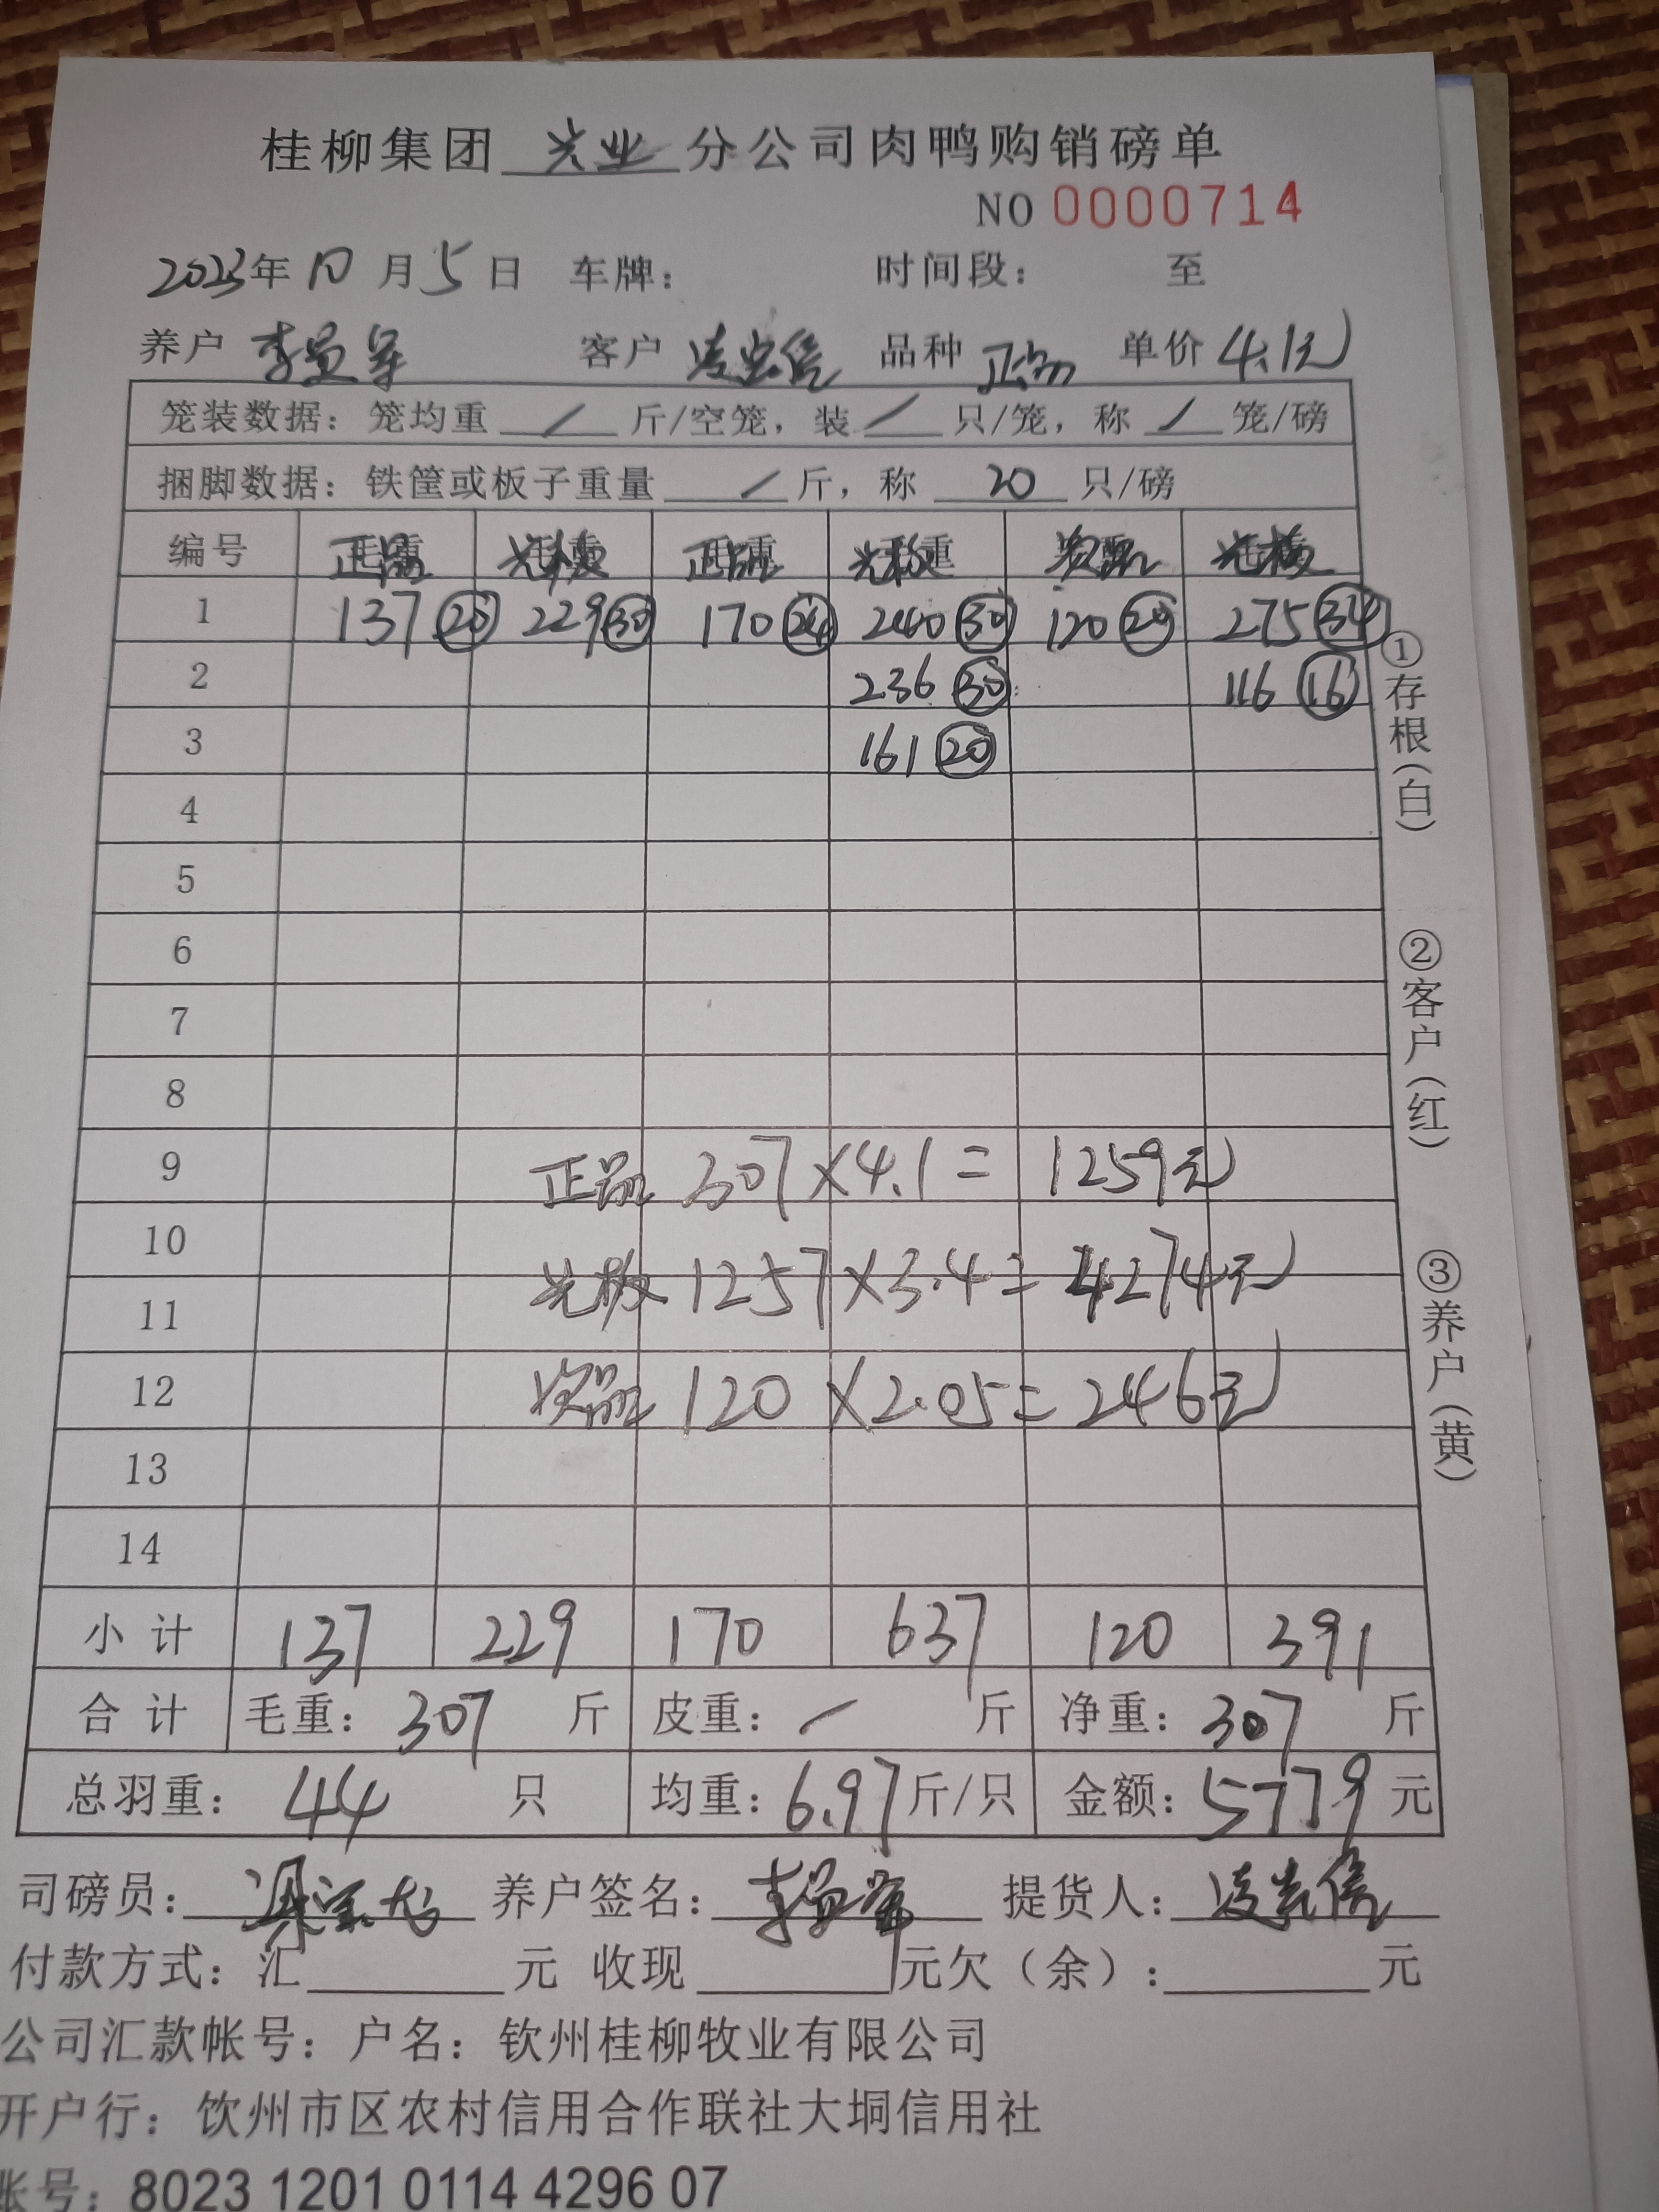 桂柳集团 光业 分公司肉鸭购销磅单
NO 0000714
2023年 10 月 5 日 车牌: 时间段: 至
养户 李 客户 凌光信 品种 正品 单价 4.1元
笼装数据: 笼均重 / 斤/空笼, 装 / 只/笼, 称 / 笼/磅
捆脚数据: 铁筐或板子重量 / 斤, 称 20 只/磅
编号 正品 光板 正品 光板 次品 光板
1 137 20 229 30 170 24 240 30 120 20 275 34
2 236 30 116 16
3 161 20
4
5
6
7
8
9 正品 307×4.1= 1259元
10
光板 1257×3.4= 4274元
11
12 次品 120 ×2.05= 246元
13
14
小计 137 229 170 637 120 391
合计 毛重: 307 斤 皮重: / 斤 净重: 307 斤
总羽重: 44 只 均重: 6.97斤/只 金额: 5779 元
司磅员: 养户签名: 李 提货人: 凌光信
付款方式: 汇 元 收现 元欠(余): 元
公司汇款帐号: 户名: 钦州桂柳牧业有限公司
开户行: 饮州市区农村信用合作联社大垌信用社
账号: 8023 1201 0114 4296 07
①存根(白)
②客户(红)
③养户(黄)